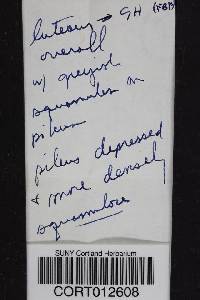 luteous → GH (FB?)
overall
w/ greyish
squamules on
pileus
pileus depressed
& more densely
squamulose
SUNY Cortland Herbarium
CORT012608